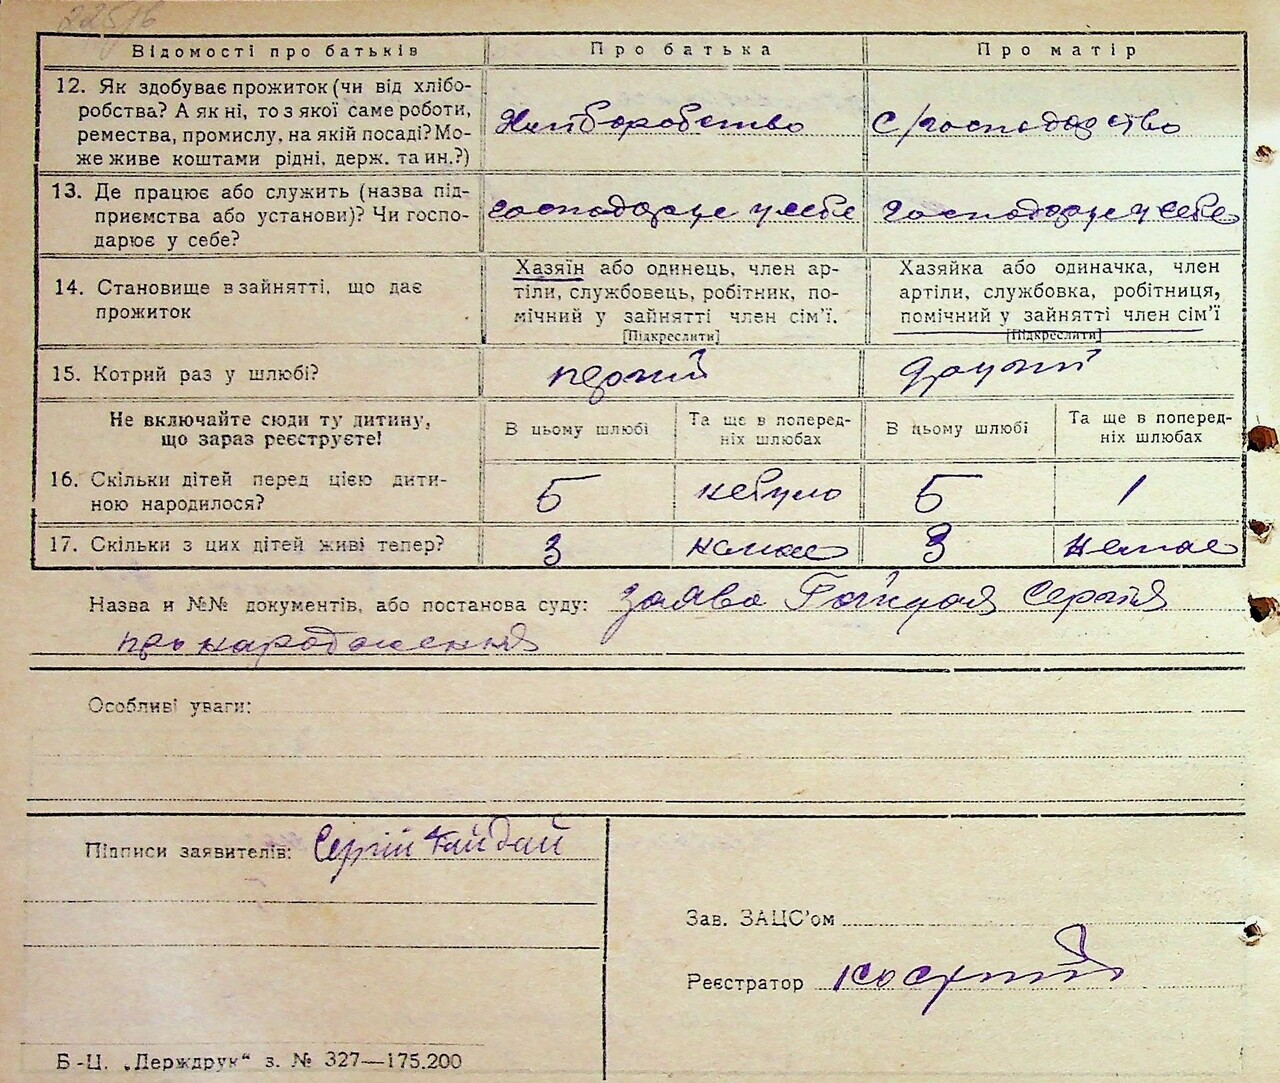 225/6
Відомості про батьків Про батька Про матір
12. Як здобуває прожиток (чи від хлібо- робства? А як ні, то з якої саме роботи, ремества, промислу, на якій посаді? Мо- же живе коштами рідні, держ. та ин.?)
Хліборобство С/господарство
13. Де працює або служить (назва під- приємства або установи)? Чи госпо- дарює у себе?
господарує у себе господарує у себе
14. Становище в зайнятті, що дає прожиток
Хазяїн або одинець, член ар- тіли, службовець, робітник, по- мічний у зайнятті член сім'ї.
[Підкреслити]
Хазяйка або одиначка, член артіли, службовка, робітниця, помічний у зайнятті член сім'ї
[Підкреслити]
15. Котрий раз у шлюбі? перший другий
Не включайте сюди ту дитину, що зараз реєструєте!
В цьому шлюбі Та ще в поперед- ніх шлюбах В цьому шлюбі Та ще в поперед- ніх шлюбах
16. Скільки дітей перед цією дити- ною народилося? 5 небуло 5 1
17. Скільки з цих дітей живі тепер? 3 немає 3 немає
Назва и №№ документів, або постанова суду: заява Гайдая Сергія
про народження
Особливі уваги:
Підписи заявителів: Сергій Гайдай
Зав. ЗАЦС'ом
Реєстратор
Б-Ц. „Держдрук“ з. № 327—175.200